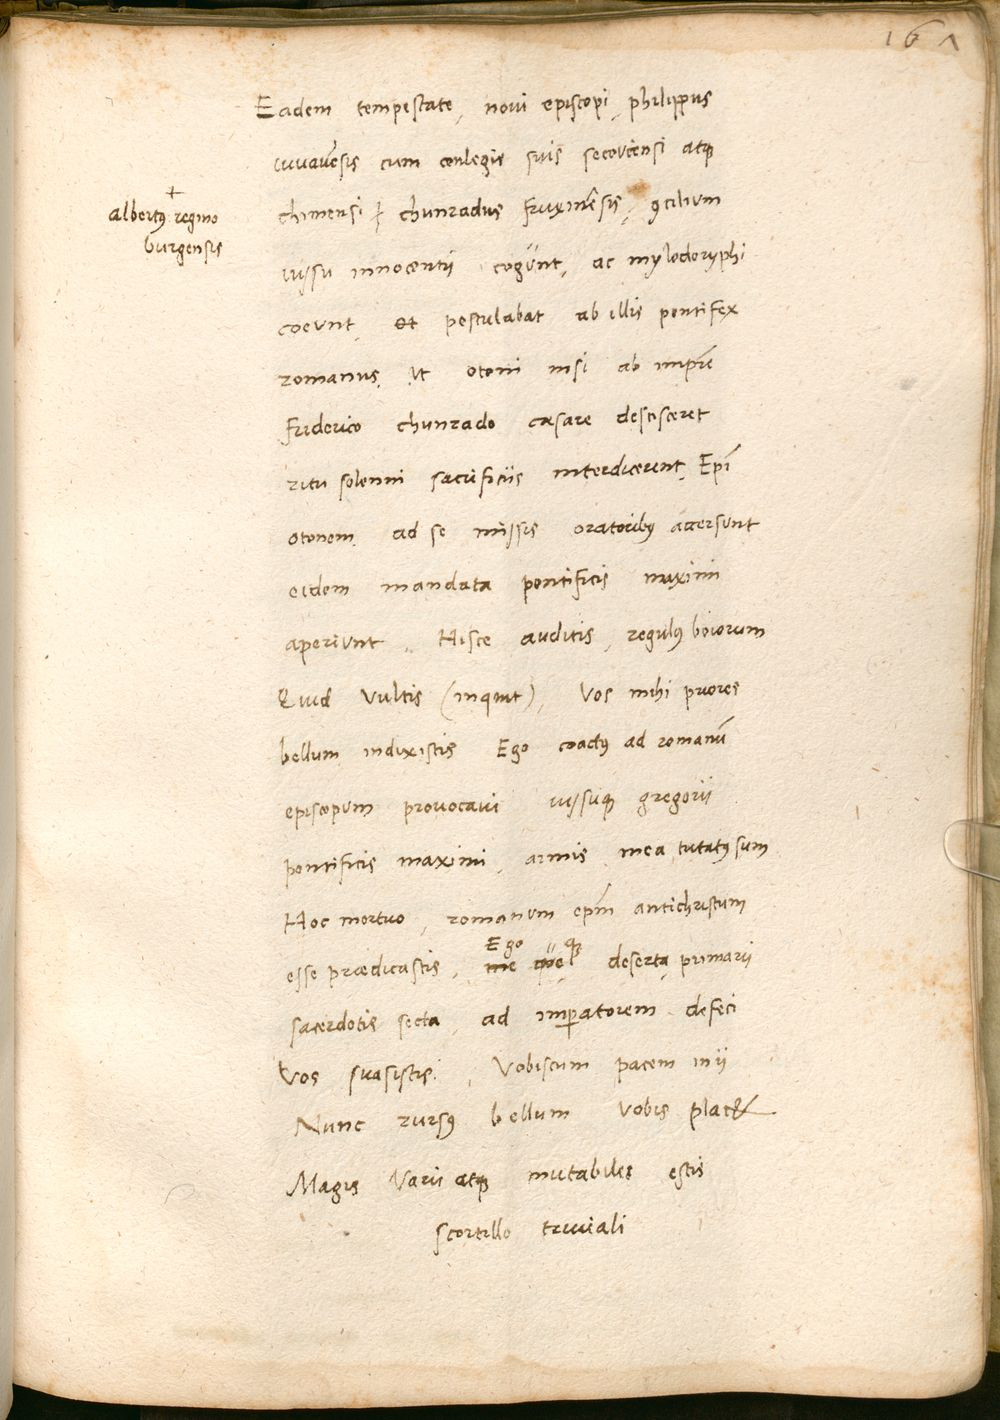 161
Eadem tempestate, noui episcopi, philippus
iuuauēsis cum conlegis suis secouiensi atqꝫ
chimensi ⸸ chunradus fruxinēsis, ꝯcilium
albertꝰ regino
burgensis
iussu innocentii cogunt, ac mylodoryphi
coeunt, et postulabat ab illis pontifex
romanus, Vt otoni nisi ab imprē
friderico chunrado cæsare descisceret
ritu solenni sacrificiis interdicerent, Epī
otonem ad se missis oratoribꝰ accersunt
eidem mandata pontificis maximi
aperiunt, Hisce auditis, regulꝰ boiorum
Quid Vultis (inquit), Vos mihi priores
bellum indixistis Ego coactꝰ ad romanū
episcopum prouocaui iussuqꝫ gregorii
pontificis maximi, armis, mea, tutatꝰ sum
Hoc mortuo, romanum epm̄ antichristum
Ego qꝫ
esse prædicastis, me deserta, primarii
sacerdotis secta, ad imperatorem defeci
Vos suasistis, Vobiscum pacem inii
Nunc rursꝰ bellum vobis plac&
Magis Varii atqꝫ mutabiles estis
scortillo triuiali